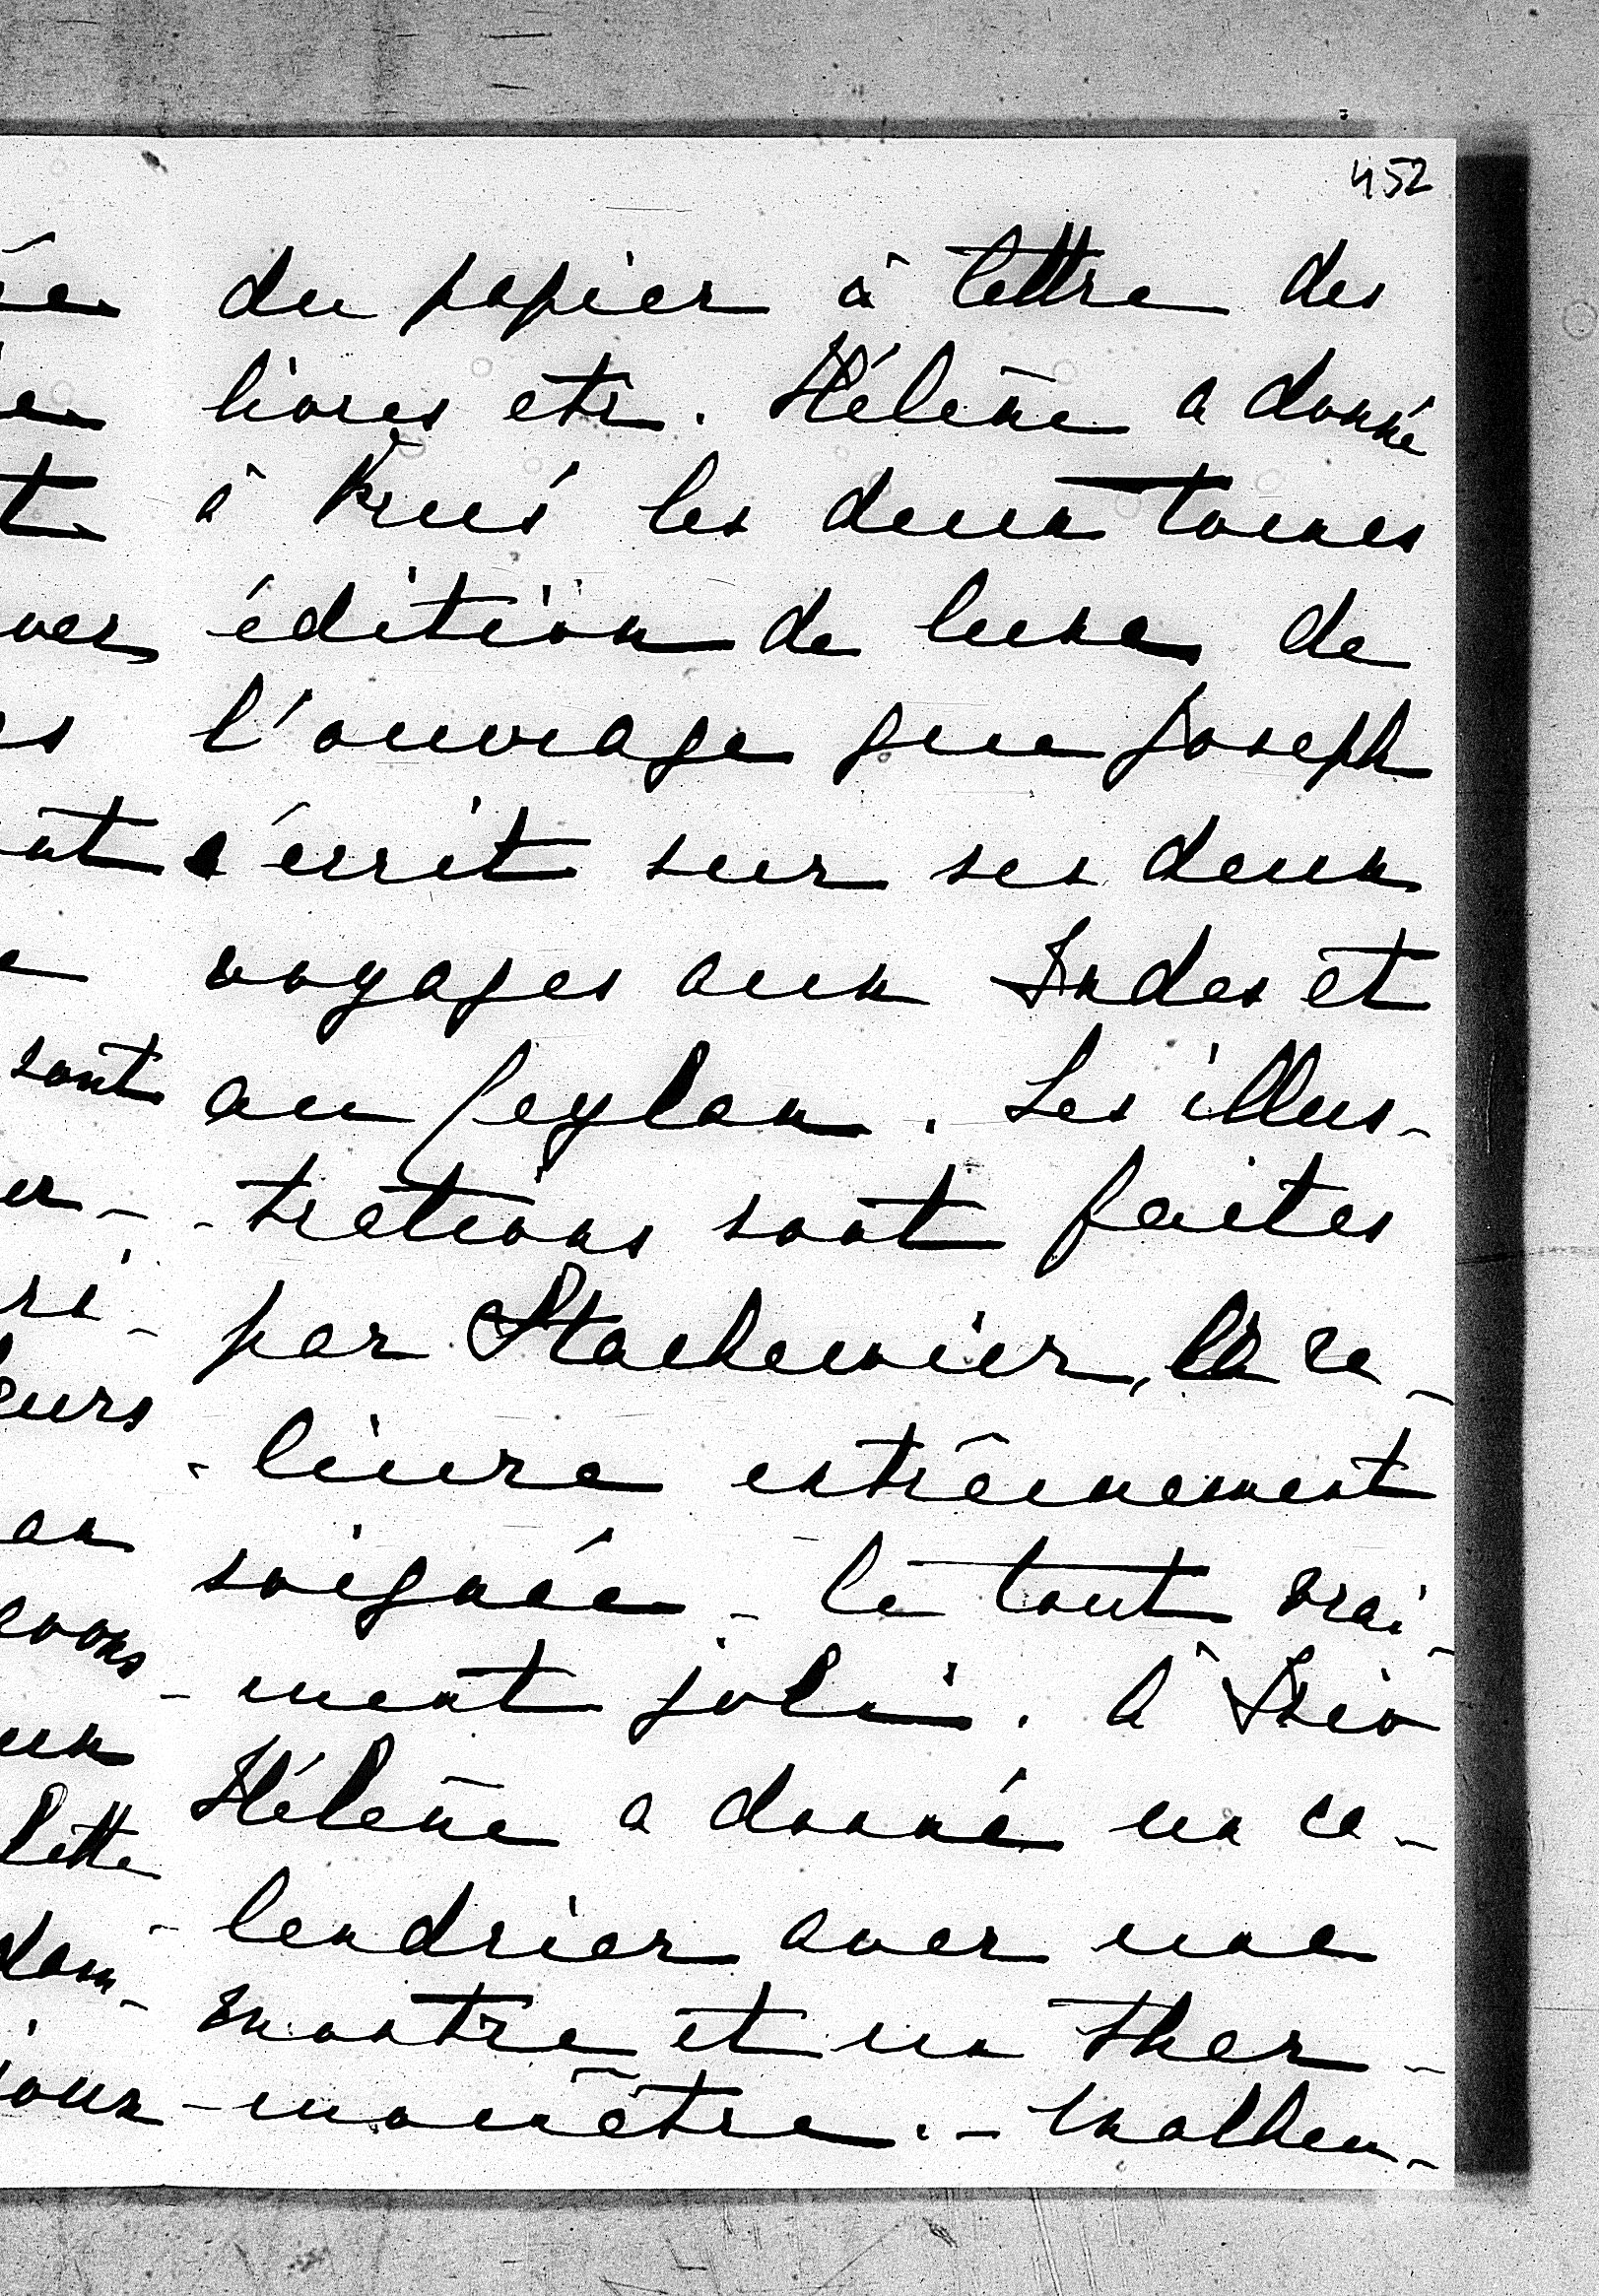 452
du papier à lettre des
livres etc. Hélène a donné
à Krus' les deux tomes
édition de luxe de
l'ouvrage que Joseph
écrit sur ses deux
voyages aux Indes et
au Ceylan. Les illus-
-trations sont faites
par Stachewicz, la re-
-liure extrêmement
soignée - le tout vrai-
-ment joli. À
Hélène a donné un ca-
-lendrier avec une
montre et un ther-
-momètre. - Malheu-
ver
sont
eurs
avons